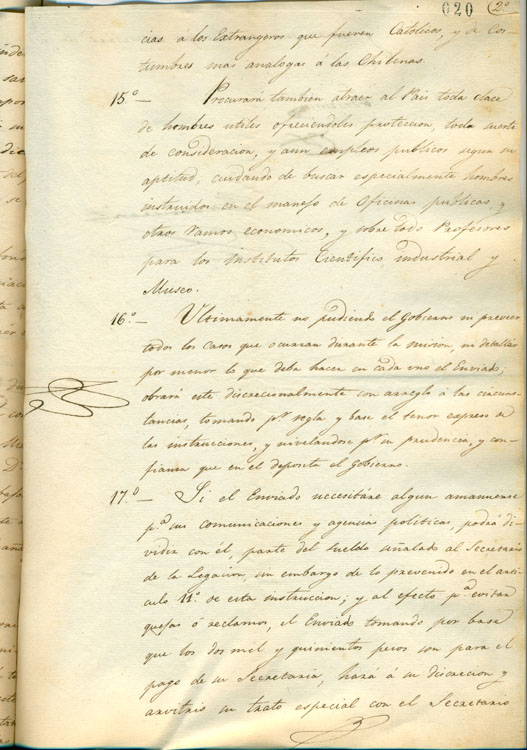 020 2º
cias a los Extrangeros que fueren Catolicos, y de Cos-
tumbres mas analogas á las Chilenas.
15.º — Procurará tambien atraer al Pais toda clace
de hombres utiles ofreciendoles proteccion, toda suerte
de consideracion, y aun empleos publicos segun su
aptitud, cuidando de buscar especialmente hombres
instruidos en el manejo de Oficinas publicas, y
otros ramos economicos, y sobre todo Profesores
para los Institutos Cientifico, industrial y
Museo.
16.º — Ultimamente no pudiendo el Gobierno ni preveer
todos los casos que ocurran durante la mision, ni detallar
por menor lo que deba hacer en cada uno el Enviado;
obrará este discrecionalmente con arreglo a las circuns-
tancias, tomando pr. regla y base el tenor expreso de
las instrucciones, y nivelandose pr. su prudencia, y con-
fianza que en el deposita el Gobierno.
17.º — Si el Enviado necesitáre algun amanuense
p.ª sus comunicaciones y agencias politicas, podrá di-
vidir con él, parte del sueldo señalado al Secretario
de la Legacion, sin embargo de lo prevenido en el arti-
culo 11.º de esta instruccion; y al efecto p.ª evitar
quejas ó reclamos, el Enviado tomando por base
que los dos mil y quinientos pesos son para el
pago de su Secretaria, hará á su discrecion y
arvitrio su trato especial con el Secretario